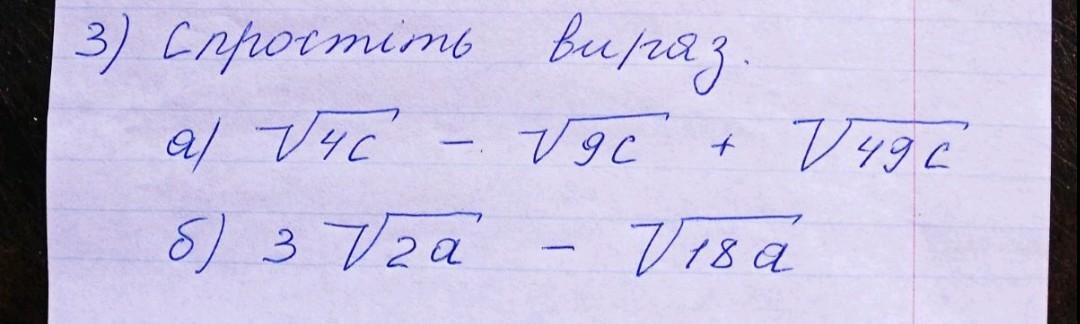 3) Спростіть вираз.
а) √4c - √9c + √49c
б) 3 √2a - √18a